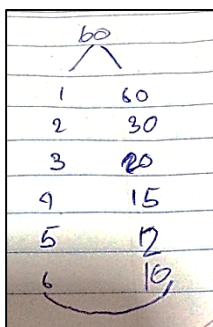 60
1 60
2 30
3 20
4 15
5 12
6 10